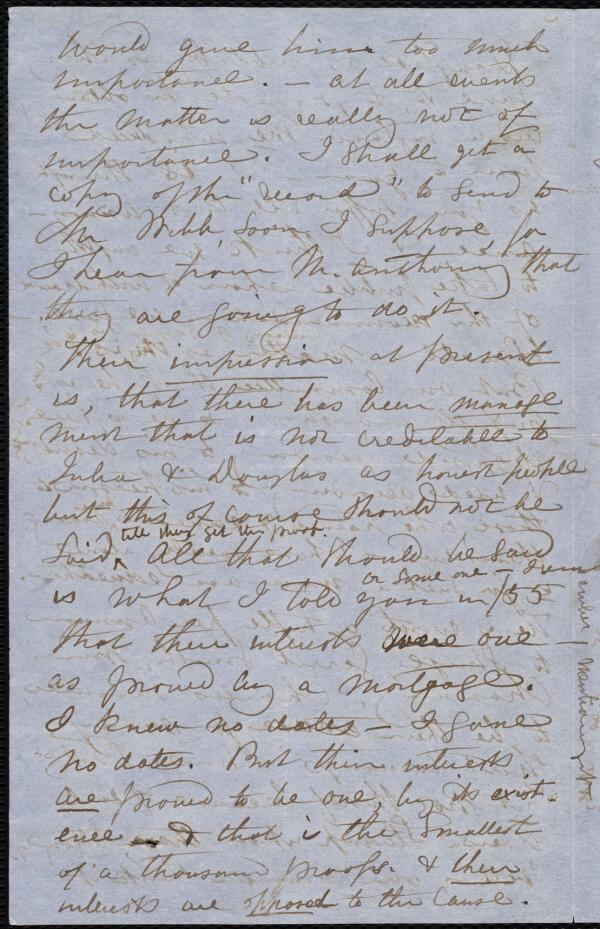 would give him too much
importance. - at all events
the matter is really not of
importance. I shall get a
copy of the "record" to send to
Mr Webb, soon I suppose, for
I hear from M. Anthony that
they are going to do it.
Their impression at present
is, that there has been manage
ment that is not creditable to
Julia & Douglas as honest people
but this of course should not be
till they get the proof.
said, All that should be said
or some one - I rem
is what I told you in/55
ember mentioning it
that their interests were one -
as proved by a mortgage.
I knew no dates - I gave
no dates. But their interests
are proved to be one, by its exist-
ence - & that is the smallest
of a thousand proofs. & their
interests are opposed to the Cause.